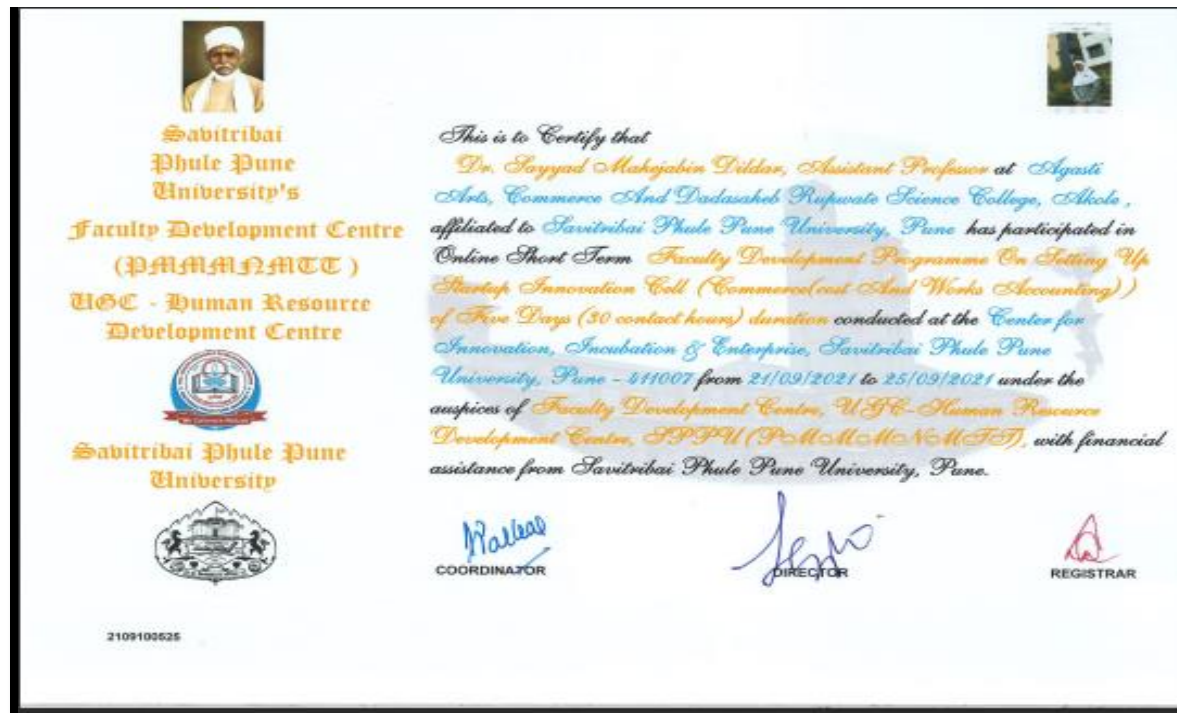 Savitribai
Phule Pune
University's
Faculty Development Centre
(PMMMNMTT )
UGC - Human Resource
Development Centre
Savitribai Phule Pune
University
2109100525
This is to Certify that
Dr. Sayyad Mahejabin Dildar, Assistant Professor at Agasti
Arts, Commerce And Dadasaheb Rupwate Science College, Akole ,
affiliated to Savitribai Phule Pune University, Pune has participated in
Online Short Term Faculty Development Programme On Setting Up
Startup Innovation Cell (Commerce(cost And Works Accounting))
of Five Days (30 contact hours) duration conducted at the Center for
Innovation, Incubation & Enterprise, Savitribai Phule Pune
University, Pune - 411007 from 21/09/2021 to 25/09/2021 under the
auspices of Faculty Development Centre, UGC-Human Resource
Development Centre, SPPU (PMMMNMTT), with financial
assistance from Savitribai Phule Pune University, Pune.
COORDINATOR
DIRECTOR
REGISTRAR